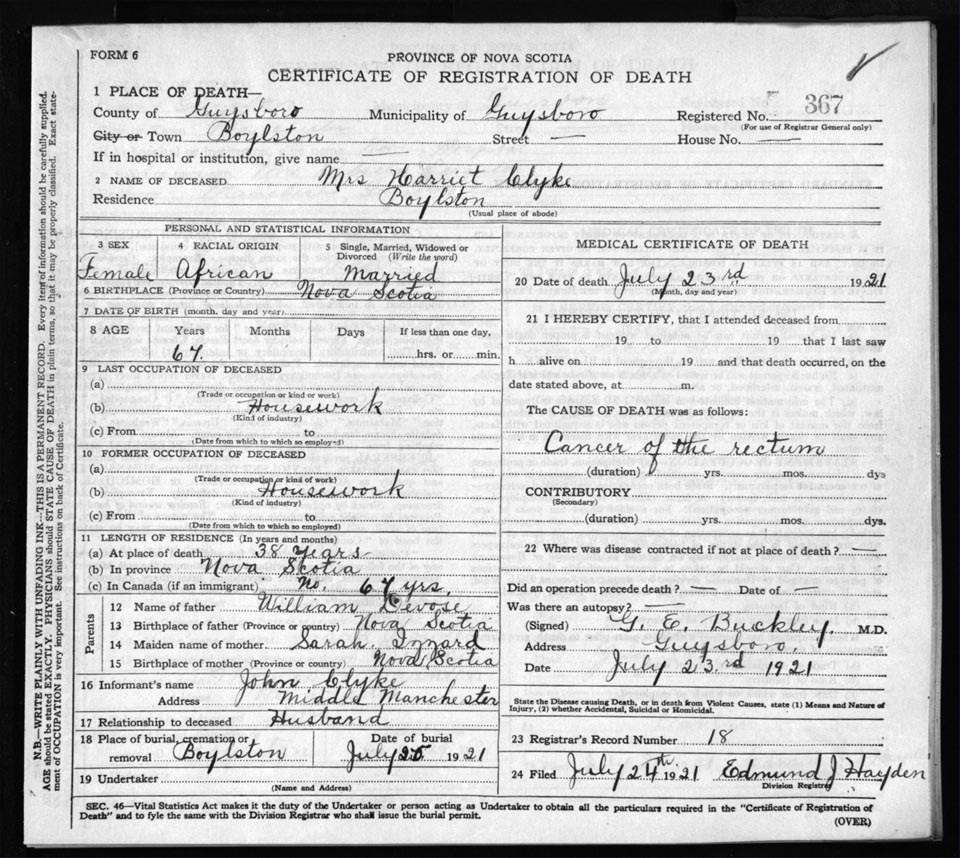 FORM 6
PROVINCE OF NOVA SCOTIA
CERTIFICATE OF REGISTRATION OF DEATH
1 PLACE OF DEATH—
County of Guysboro Municipality of Guysboro Registered No. 367
(For use of Registrar General only)
City or Town Boylston Street — House No. —
If in hospital or institution, give name —
2 NAME OF DECEASED Mrs Harriet Clyke
Residence Boylston
(Usual place of abode)
PERSONAL AND STATISTICAL INFORMATION
3 SEX 4 RACIAL ORIGIN 5 Single, Married, Widowed or Divorced (Write the word)
Female African Married
6 BIRTHPLACE (Province or Country) Nova Scotia
7 DATE OF BIRTH (month, day and year)
8 AGE Years Months Days If less than one day,
67. hrs. or min.
9 LAST OCCUPATION OF DECEASED
(a)
(Trade or occupation or kind or work)
(b) Housework
(Kind of industry)
(c) From to
(Date from which to which so employed)
10 FORMER OCCUPATION OF DECEASED
(a)
(Trade or occupation or kind of work)
(b) Housework
(Kind of industry)
(c) From to
(Date from which to which so employed)
11 LENGTH OF RESIDENCE (In years and months)
(a) At place of death 38 Years
(b) In province Nova Scotia
(c) In Canada (if an immigrant) No. 67 yrs.
Parents
12 Name of father William Devose
13 Birthplace of father (Province or country) Nova Scotia
14 Maiden name of mother Sarah Izzard
15 Birthplace of mother (Province or country) Nova Scotia
16 Informant's name John Clyke
Address Middle Manchester
17 Relationship to deceased Husband
18 Place of burial, cremation or removal Boylston Date of burial July 25 1921
19 Undertaker
(Name and Address)
MEDICAL CERTIFICATE OF DEATH
20 Date of death July 23rd 1921
(Month, day and year)
21 I HEREBY CERTIFY, that I attended deceased from
19 to 19 that I last saw
h alive on 19 and that death occurred, on the
date stated above, at m.
The CAUSE OF DEATH was as follows:
Cancer of the rectum
(duration) yrs. mos. dys
CONTRIBUTORY
(Secondary)
(duration) yrs. mos. dys.
22 Where was disease contracted if not at place of death? —
Did an operation precede death? — Date of —
Was there an autopsy? —
(Signed) G. E. Buckley, M.D.
Address Guysboro,
Date July 23rd 1921
State the Disease causing Death, or in death from Violent Causes, state (1) Means and Nature of
Injury, (2) whether Accidental, Suicidal or Homicidal.
23 Registrar's Record Number 18
24 Filed July 24th 1921 Edmund J Hayden
Division Registrar
SEC. 46—Vital Statistics Act makes it the duty of the Undertaker or person acting as Undertaker to obtain all the particulars required in the "Certificate of Registration of
Death" and to fyle the same with the Division Registrar who shall issue the burial permit.
(OVER)
N.B.—WRITE PLAINLY WITH UNFADING INK—THIS IS A PERMANENT RECORD. Every item of information should be carefully supplied.
AGE should be stated EXACTLY. PHYSICIANS should STATE CAUSE OF DEATH in plain terms, so that it may be properly classified. Exact state-
ment of OCCUPATION is very important. See instructions on back of Certificate.